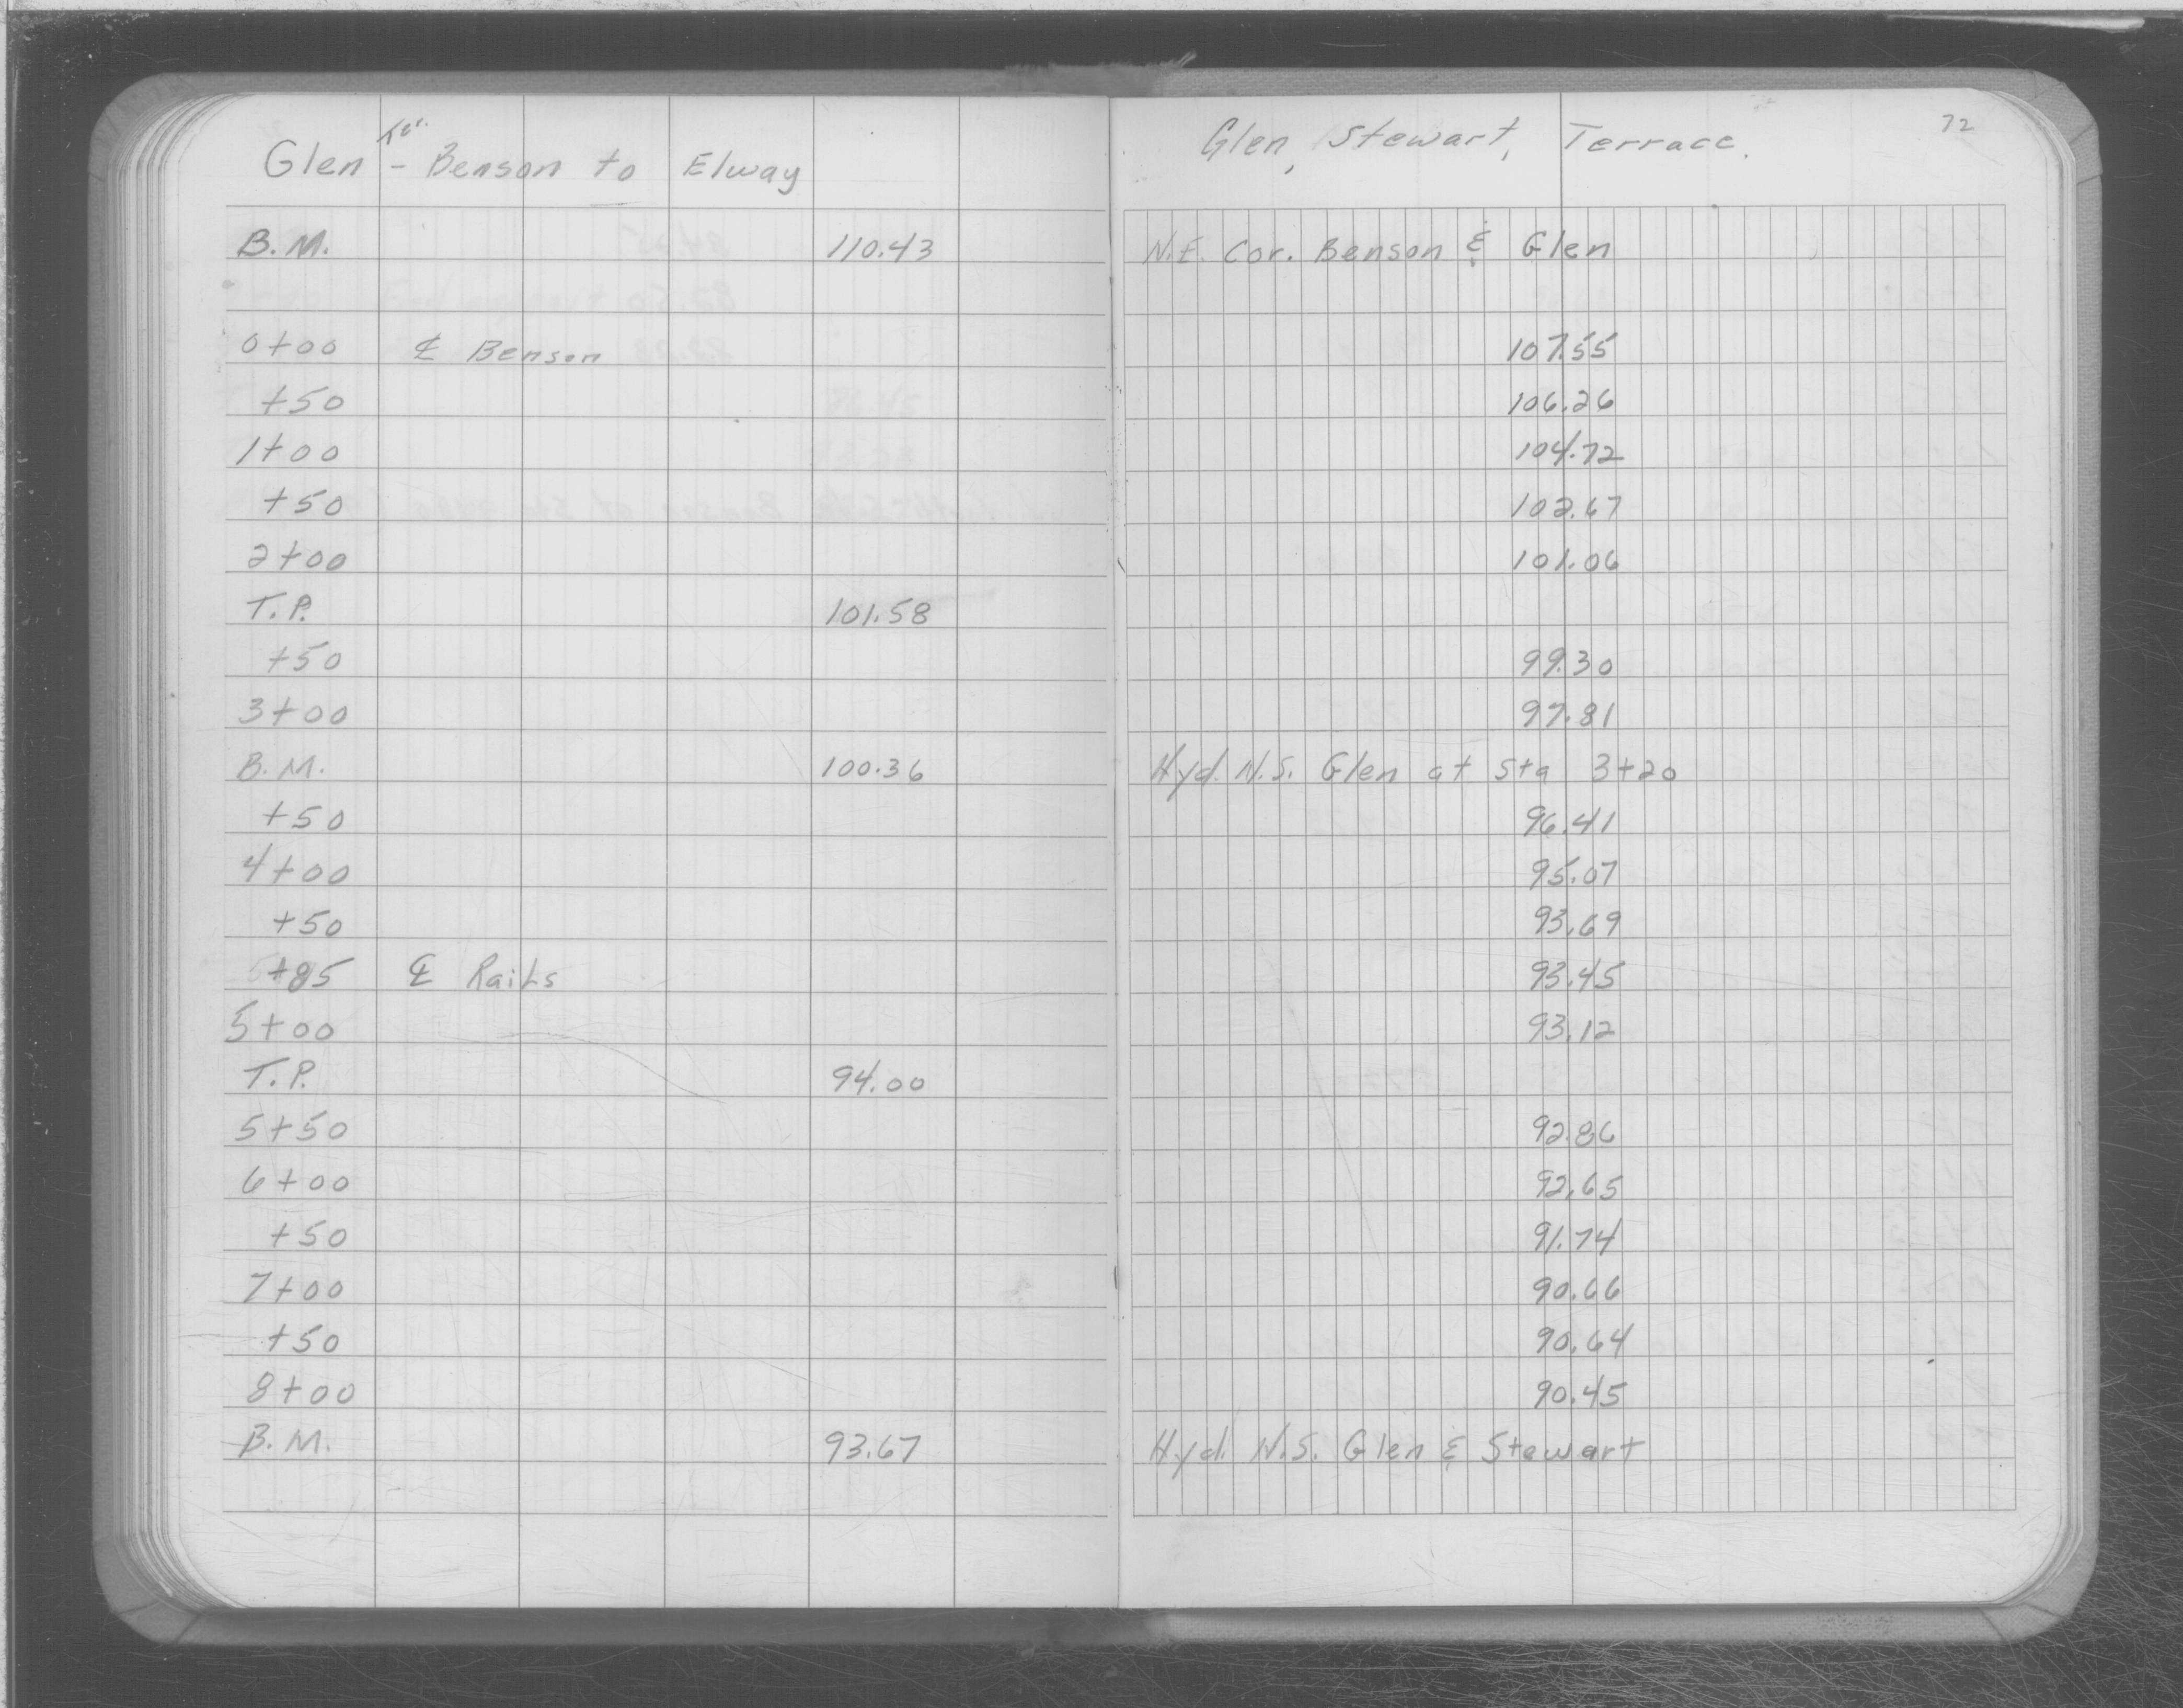 Glen Ter. - Benson to Elway
Glen, Stewart, Terrace. 72
B.M. 110.43 N.E. Cor. Benson & Glen
0+00 ℄ Benson 107.55
+50 106.26
1+00 104.72
+50 102.67
2+00 101.06
T.P. 101.58
+50 99.30
3+00 97.81
B.M. 100.36 Hyd. N.S. Glen at Sta 3+20
+50 96.41
4+00 95.07
+50 93.69
+85 ℄ Rails 93.45
5+00 93.12
T.P. 94.00
5+50 92.86
6+00 92.65
+50 91.74
7+00 90.66
+50 90.64
8+00 90.45
B.M. 93.67 Hyd. N.S. Glen & Stewart